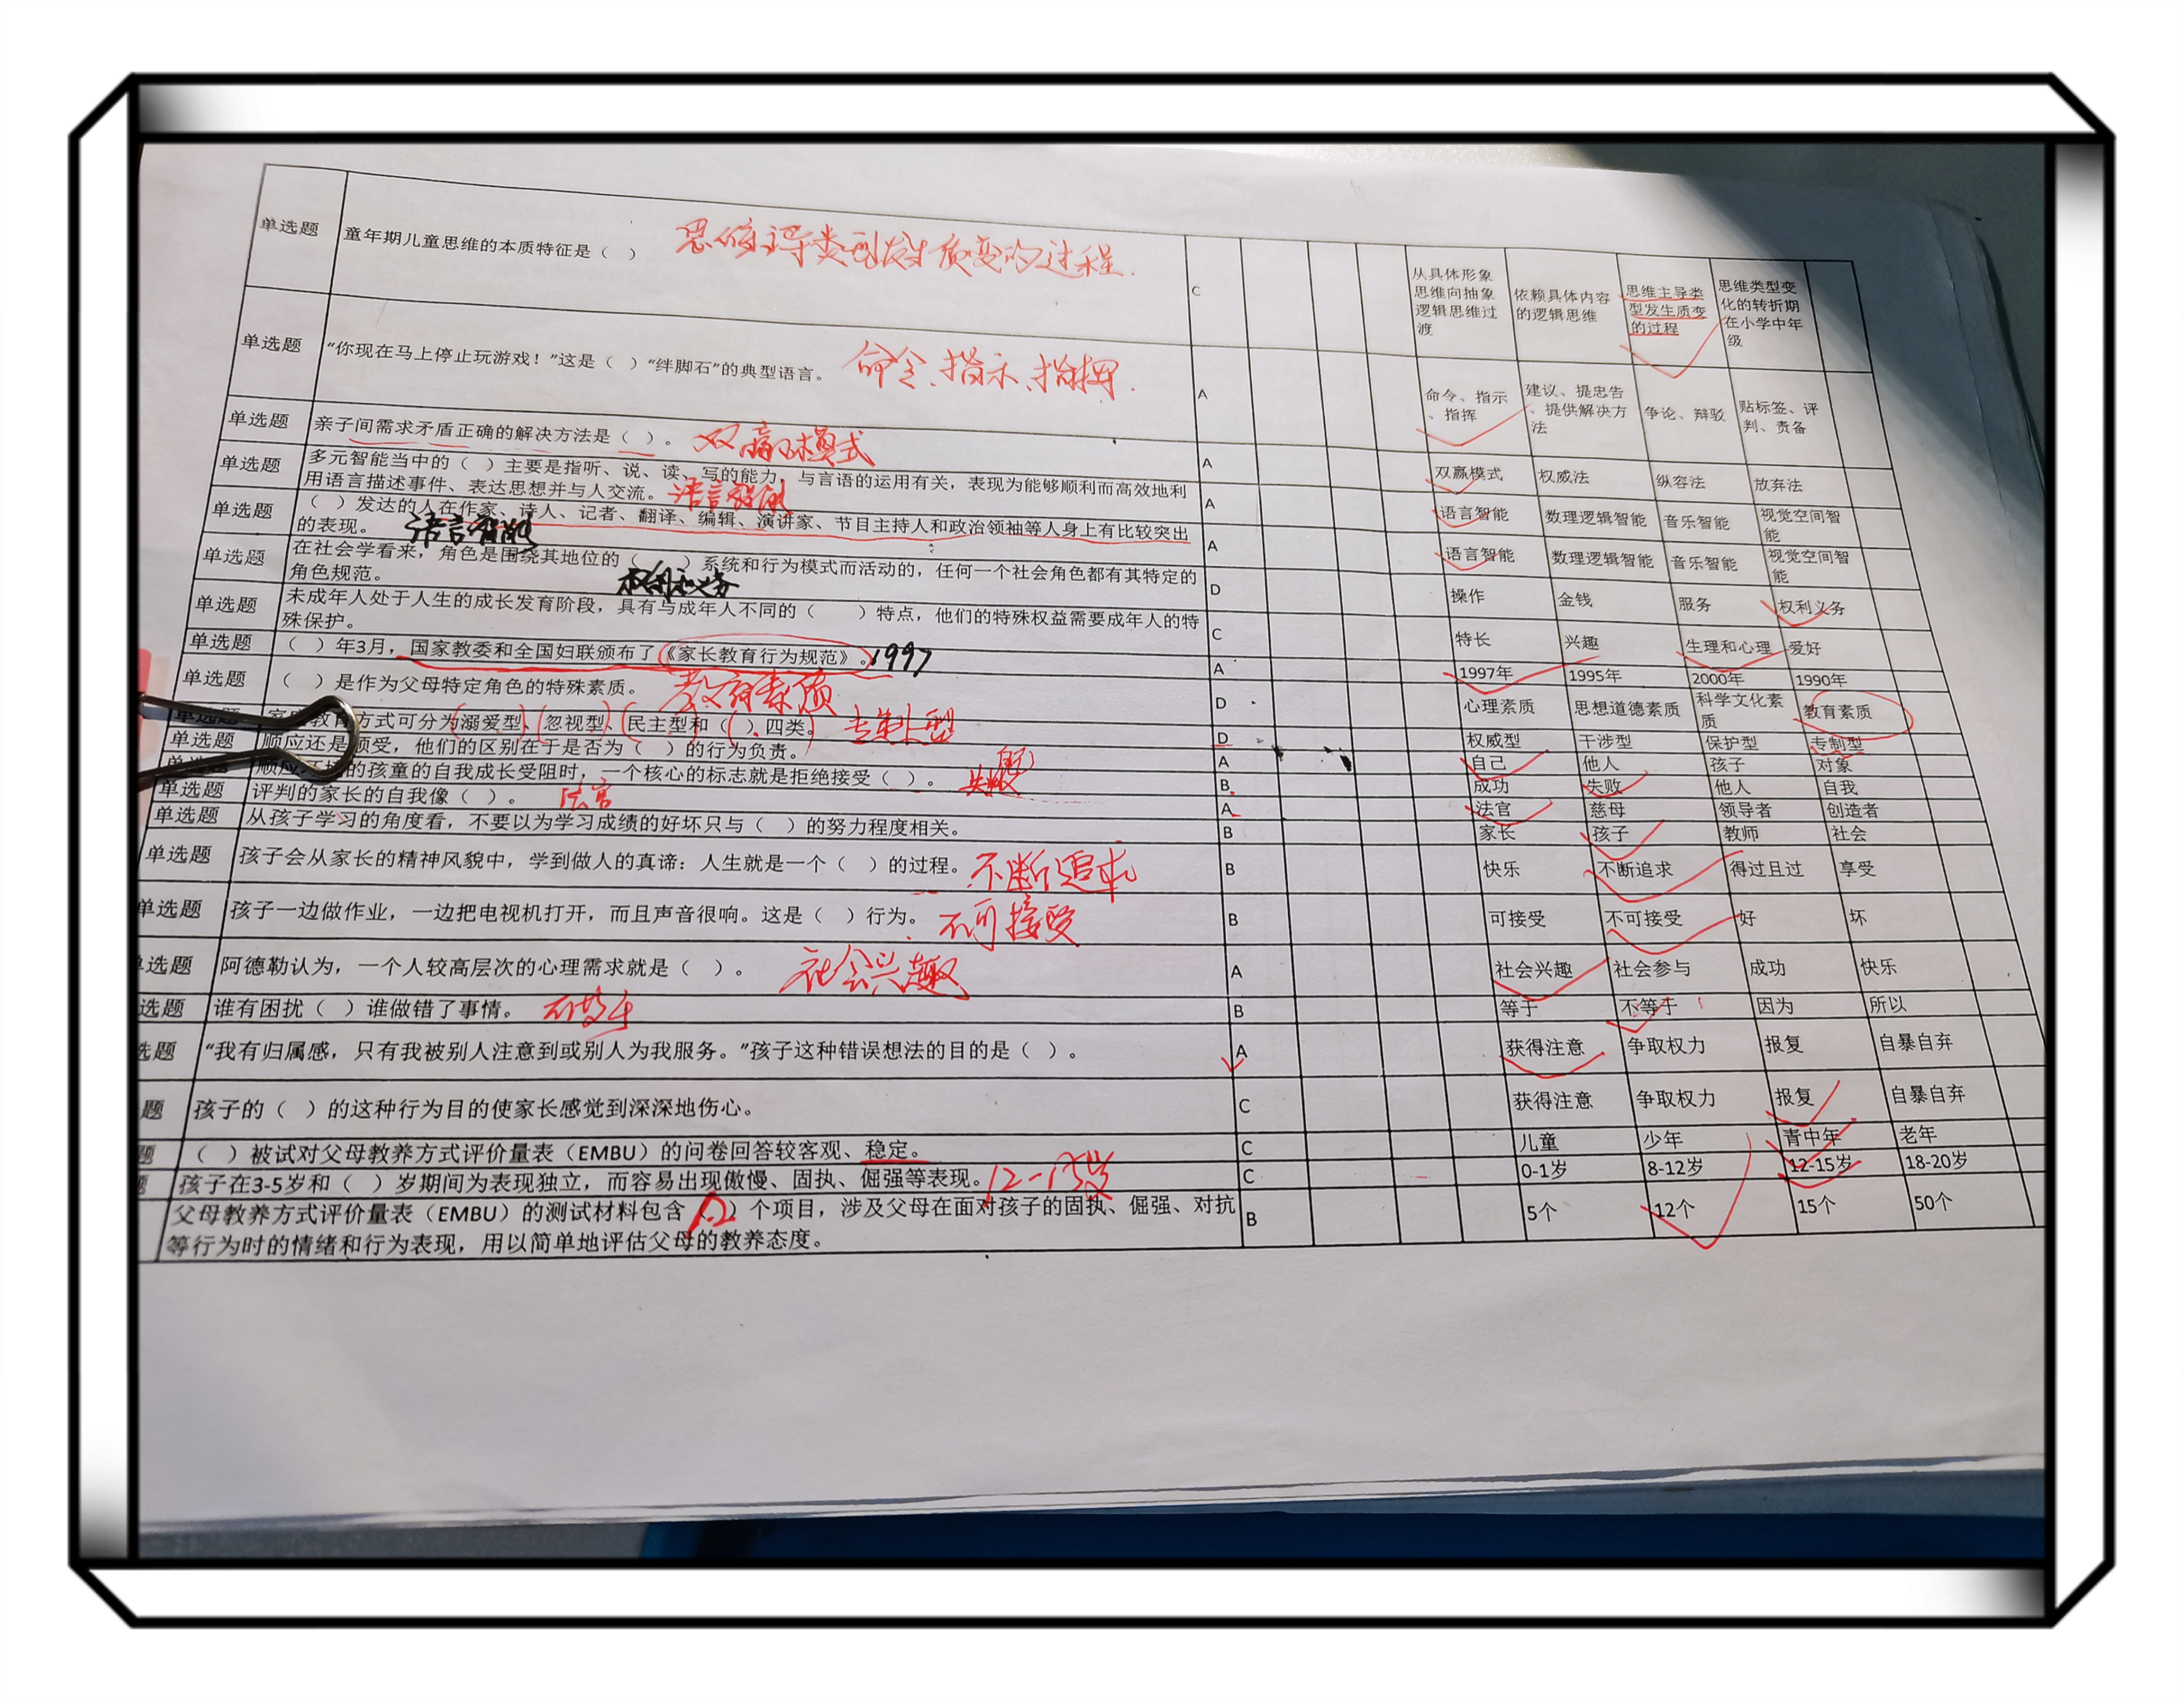 单选题 童年期儿童思维的本质特征是（ ） 思维主导类型发生质变的过程. C 从具体形象思维向抽象逻辑思维过渡 依赖具体内容的逻辑思维 思维主导类型发生质变的过程 思维类型变化的转折期在小学中年级
单选题 “你现在马上停止玩游戏！”这是（ ）“绊脚石”的典型语言。 命令、指示、指挥. A 命令、指示、指挥 建议、提忠告、提供解决方法 争论、辩驳 贴标签、评判、责备
单选题 亲子间需求矛盾正确的解决方法是（ ）。 双赢模式 A 双赢模式 权威法 纵容法 放弃法
单选题 多元智能当中的（ ）主要是指听、说、读、写的能力，与言语的运用有关，表现为能够顺利而高效地利
用语言描述事件、表达思想并与人交流。 语言智能 A 语言智能 数理逻辑智能 音乐智能 视觉空间智能
单选题 （ ）发达的人在作家、诗人、记者、翻译、编辑、演讲家、节目主持人和政治领袖等人身上有比较突出
的表现。 语言智能 A 语言智能 数理逻辑智能 音乐智能 视觉空间智能
单选题 在社会学看来，角色是围绕其地位的（ ）系统和行为模式而活动的，任何一个社会角色都有其特定的
角色规范。 权利和义务 D 操作 金钱 服务 权利义务
单选题 未成年人处于人生的成长发育阶段，具有与成年人不同的（ ）特点，他们的特殊权益需要成年人的特
殊保护。 C 特长 兴趣 生理和心理 爱好
单选题 （ ）年3月，国家教委和全国妇联颁布了《家长教育行为规范》。 1997 A 1997年 1995年 2000年 1990年
单选题 （ ）是作为父母特定角色的特殊素质。 教育素质 D 心理素质 思想道德素质 科学文化素质 教育素质
单选题 家庭教育方式可分为溺爱型、忽视型、民主型和（ ）四类。 专制型 D 权威型 干涉型 保护型 专制型
单选题 顺应还是顺受，他们的区别在于是否为（ ）的行为负责。 A 自己 他人 孩子 对象
单选题 的孩童的自我成长受阻时，一个核心的标志就是拒绝接受（ ）。 失败 B 成功 失败 他人 自我
单选题 评判的家长的自我像（ ）。 法官 A 法官 慈母 领导者 创造者
单选题 从孩子学习的角度看，不要以为学习成绩的好坏只与（ ）的努力程度相关。 B 家长 孩子 教师 社会
单选题 孩子会从家长的精神风貌中，学到做人的真谛：人生就是一个（ ）的过程。 不断追求 B 快乐 不断追求 得过且过 享受
单选题 孩子一边做作业，一边把电视机打开，而且声音很响。这是（ ）行为。 不可接受 B 可接受 不可接受 好 坏
单选题 阿德勒认为，一个人较高层次的心理需求就是（ ）。 社会兴趣 A 社会兴趣 社会参与 成功 快乐
选题 谁有困扰（ ）谁做错了事情。 不等于 B 等于 不等于 因为 所以
选题 “我有归属感，只有我被别人注意到或别人为我服务。”孩子这种错误想法的目的是（ ）。 A 获得注意 争取权力 报复 自暴自弃
题 孩子的（ ）的这种行为目的使家长感觉到深深地伤心。 C 获得注意 争取权力 报复 自暴自弃
题 （ ）被试对父母教养方式评价量表（EMBU）的问卷回答较客观、稳定。 C 儿童 少年 青中年 老年
孩子在3-5岁和（ ）岁期间为表现独立，而容易出现傲慢、固执、倔强等表现。 12-15岁 C 0-1岁 8-12岁 12-15岁 18-20岁
父母教养方式评价量表（EMBU）的测试材料包含（12）个项目，涉及父母在面对孩子的固执、倔强、对抗
等行为时的情绪和行为表现，用以简单地评估父母的教养态度。 B 5个 12个 15个 50个